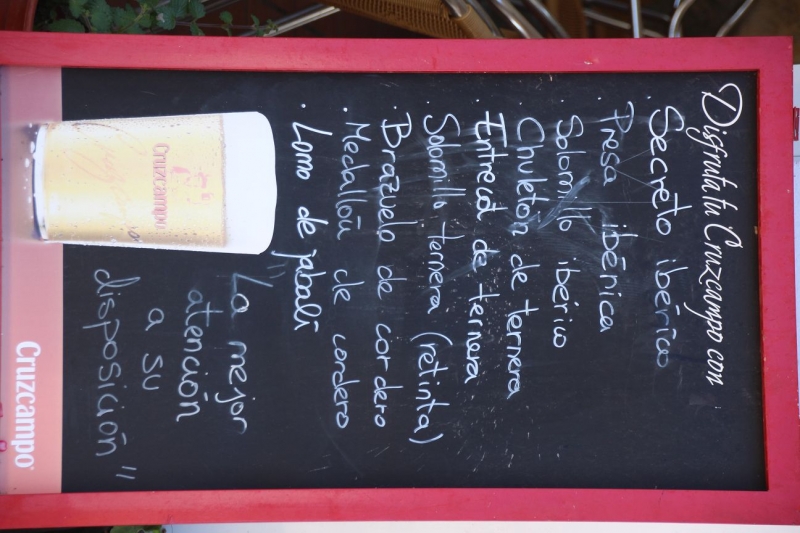 Disfruta tu Cruzcampo con
. Secreto ibérico
. Presa ibérica
. Solomillo ibérico
. Chuletón de ternera
. Entrecot de ternera
. Solomillo ternera (retinta)
. Brazuelo de cordero
. Medallón de cordero
. Lomo de jabalí
"La mejor
atención
a su
disposición"
Cruzcampo
Cruzcampo